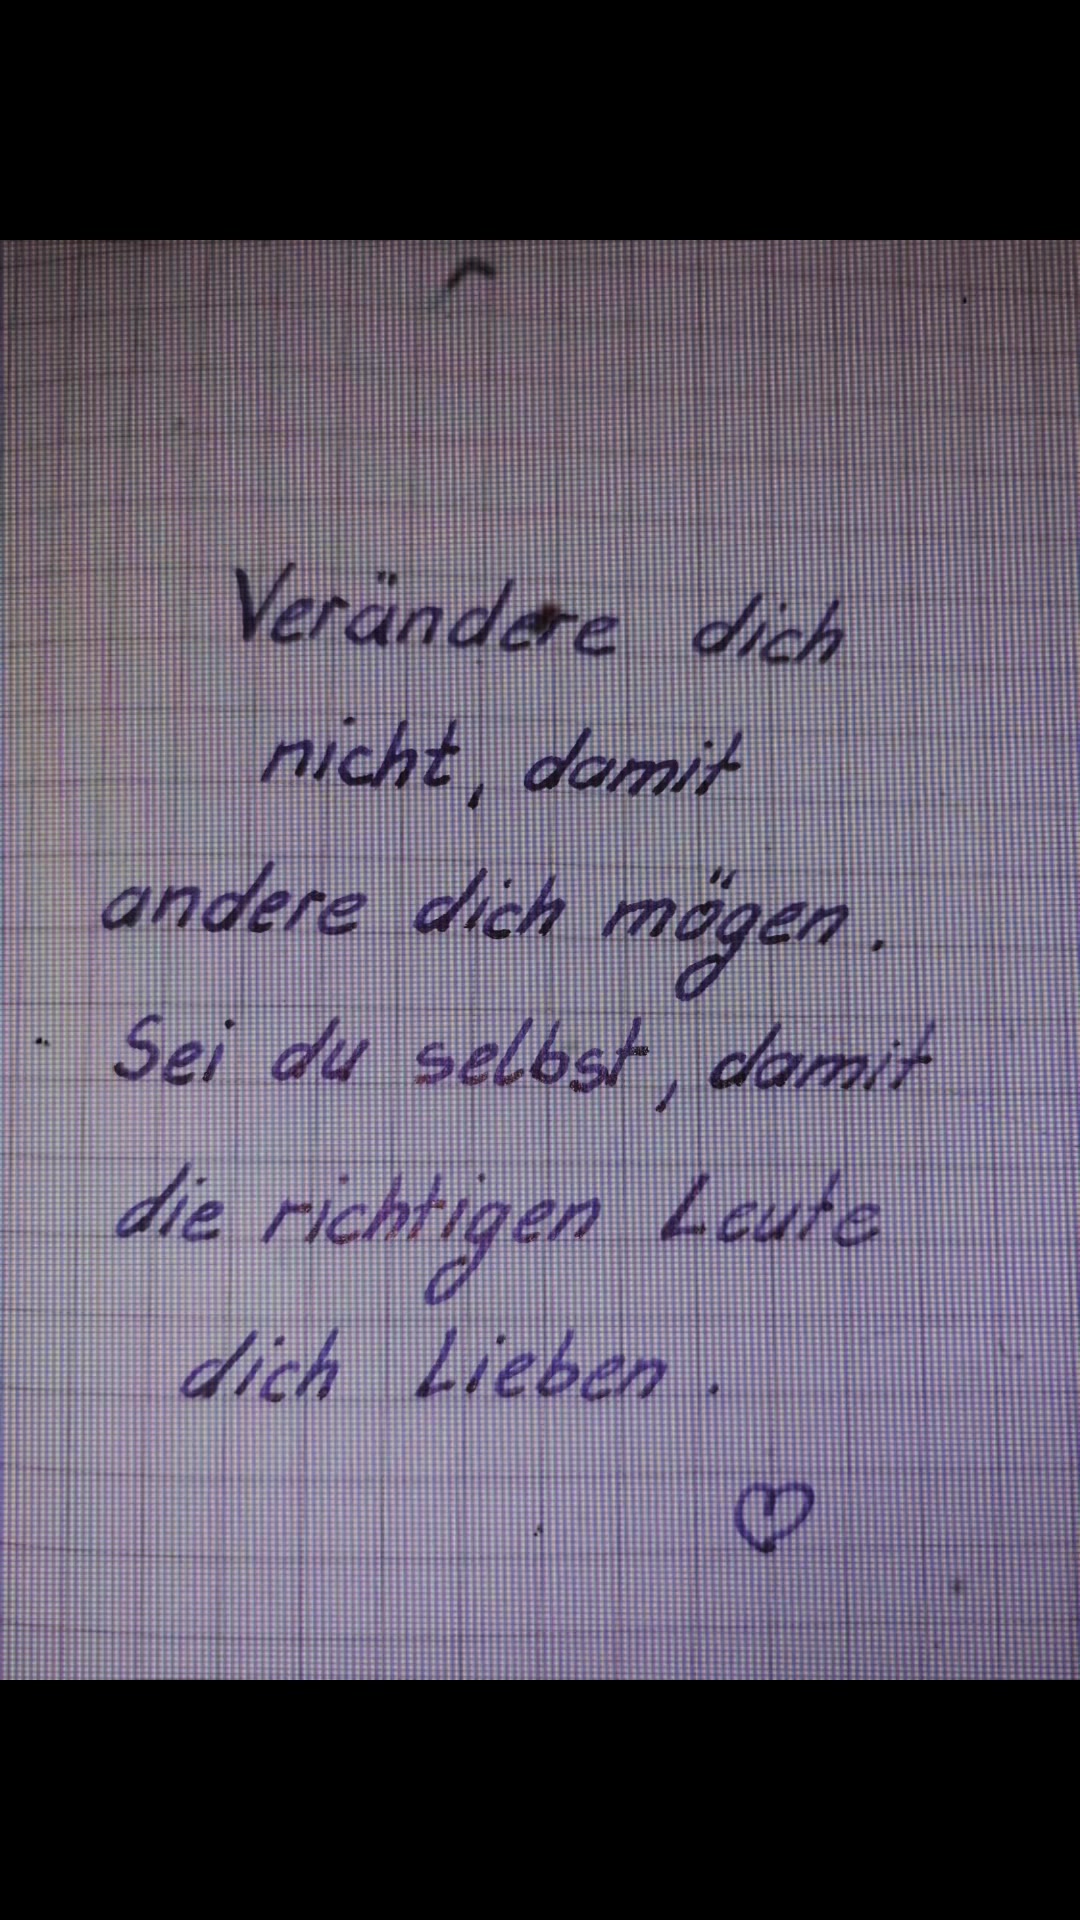 Verändere dich
nicht, damit
andere dich mögen.
Sei du selbst, damit
die richtigen Leute
dich Lieben.